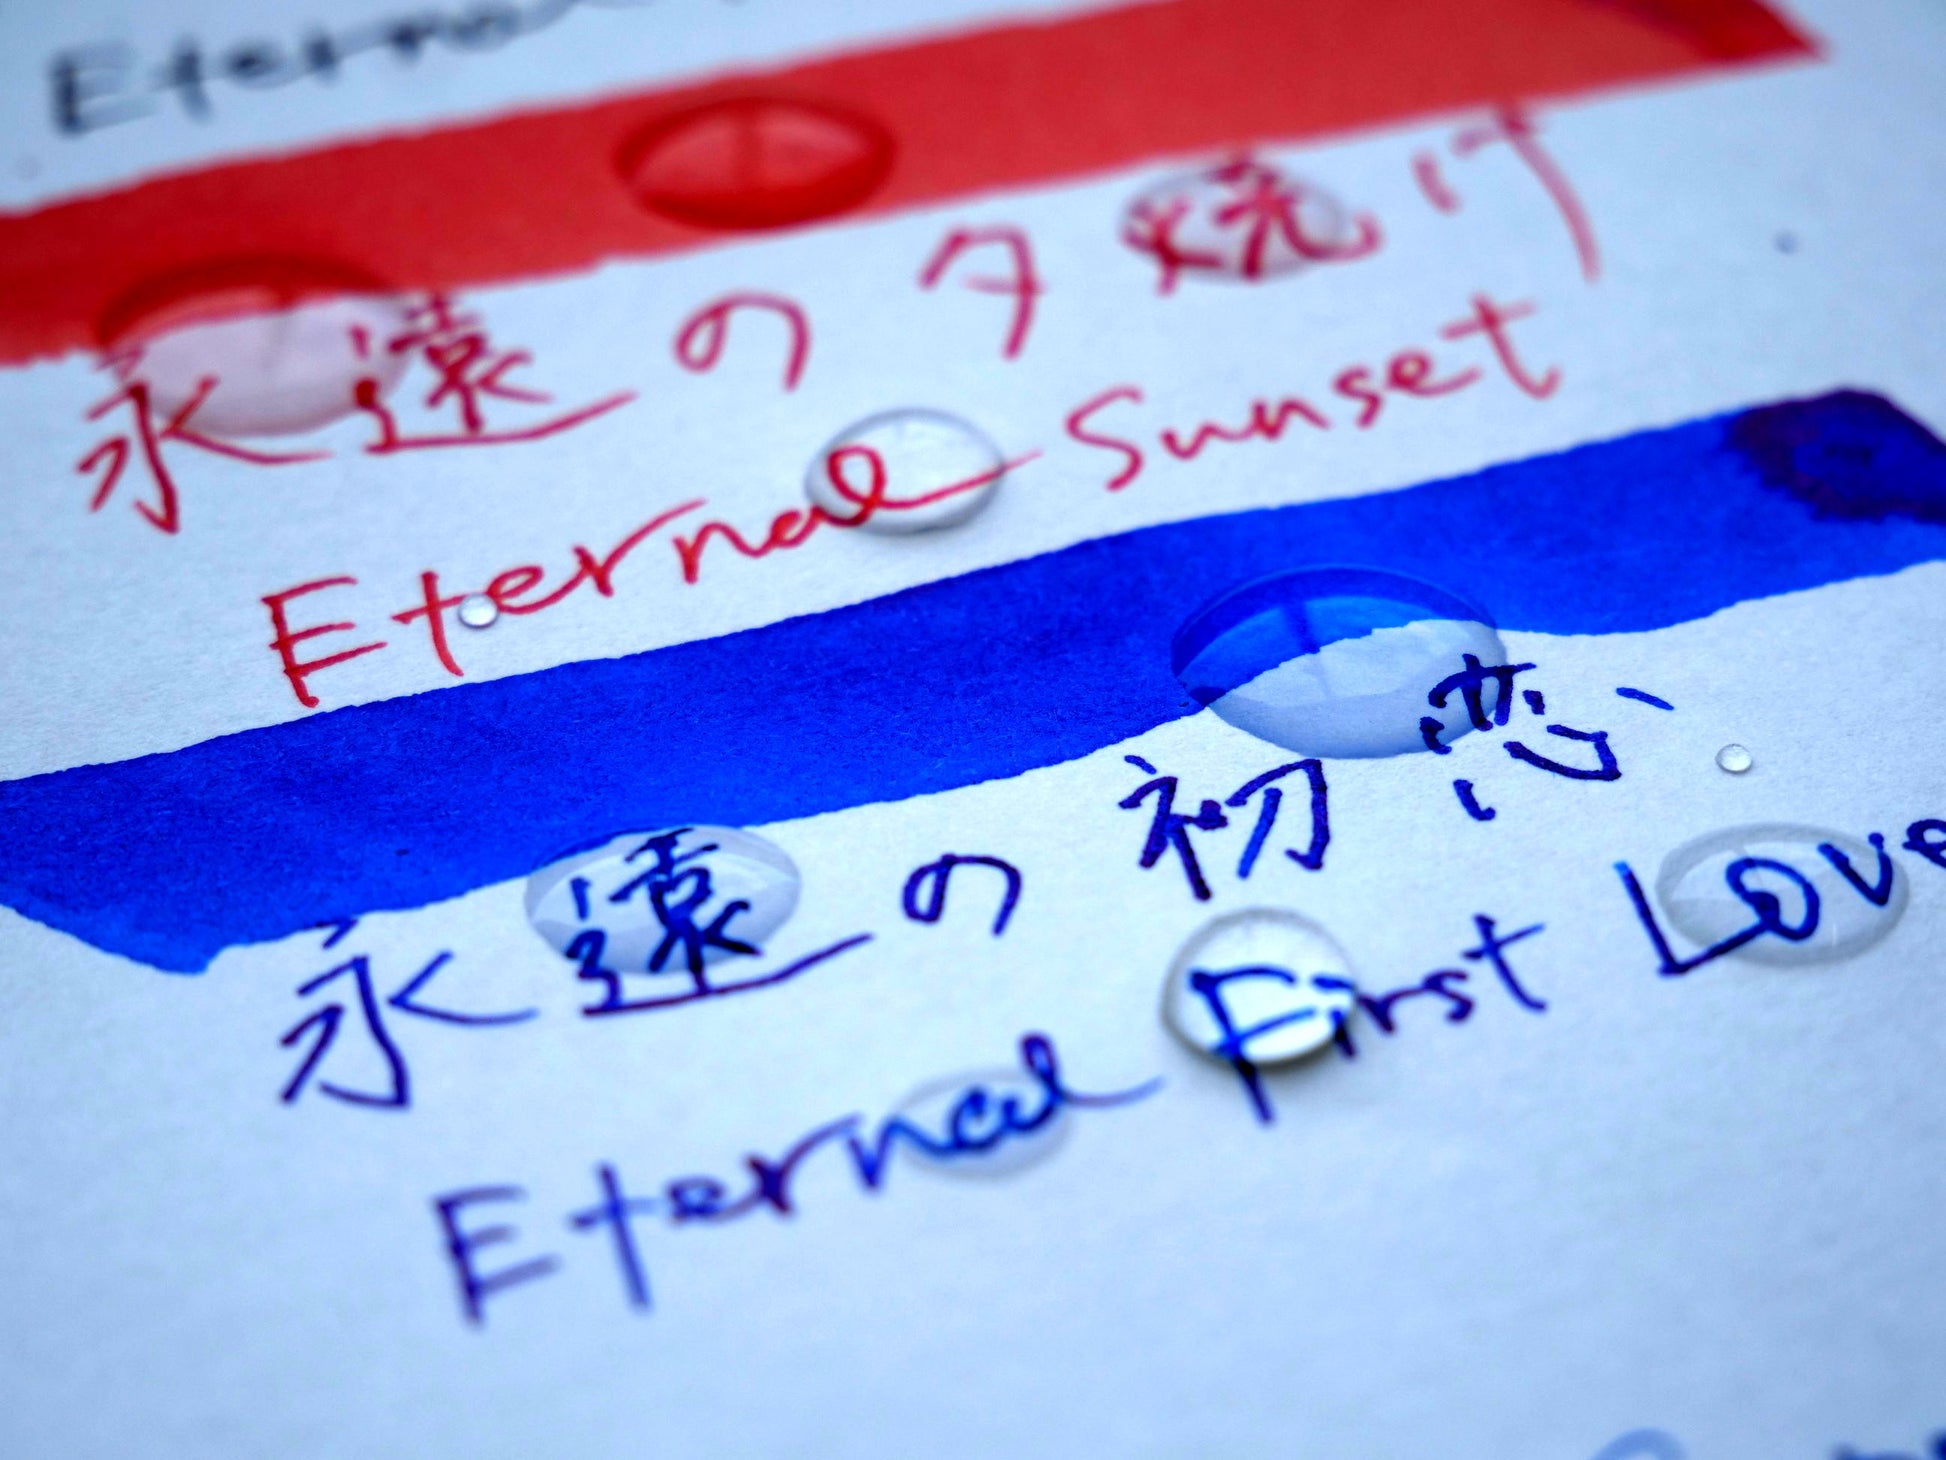 永遠の夕焼け
Eternal Sunset
永遠の初恋
Eternal First Love